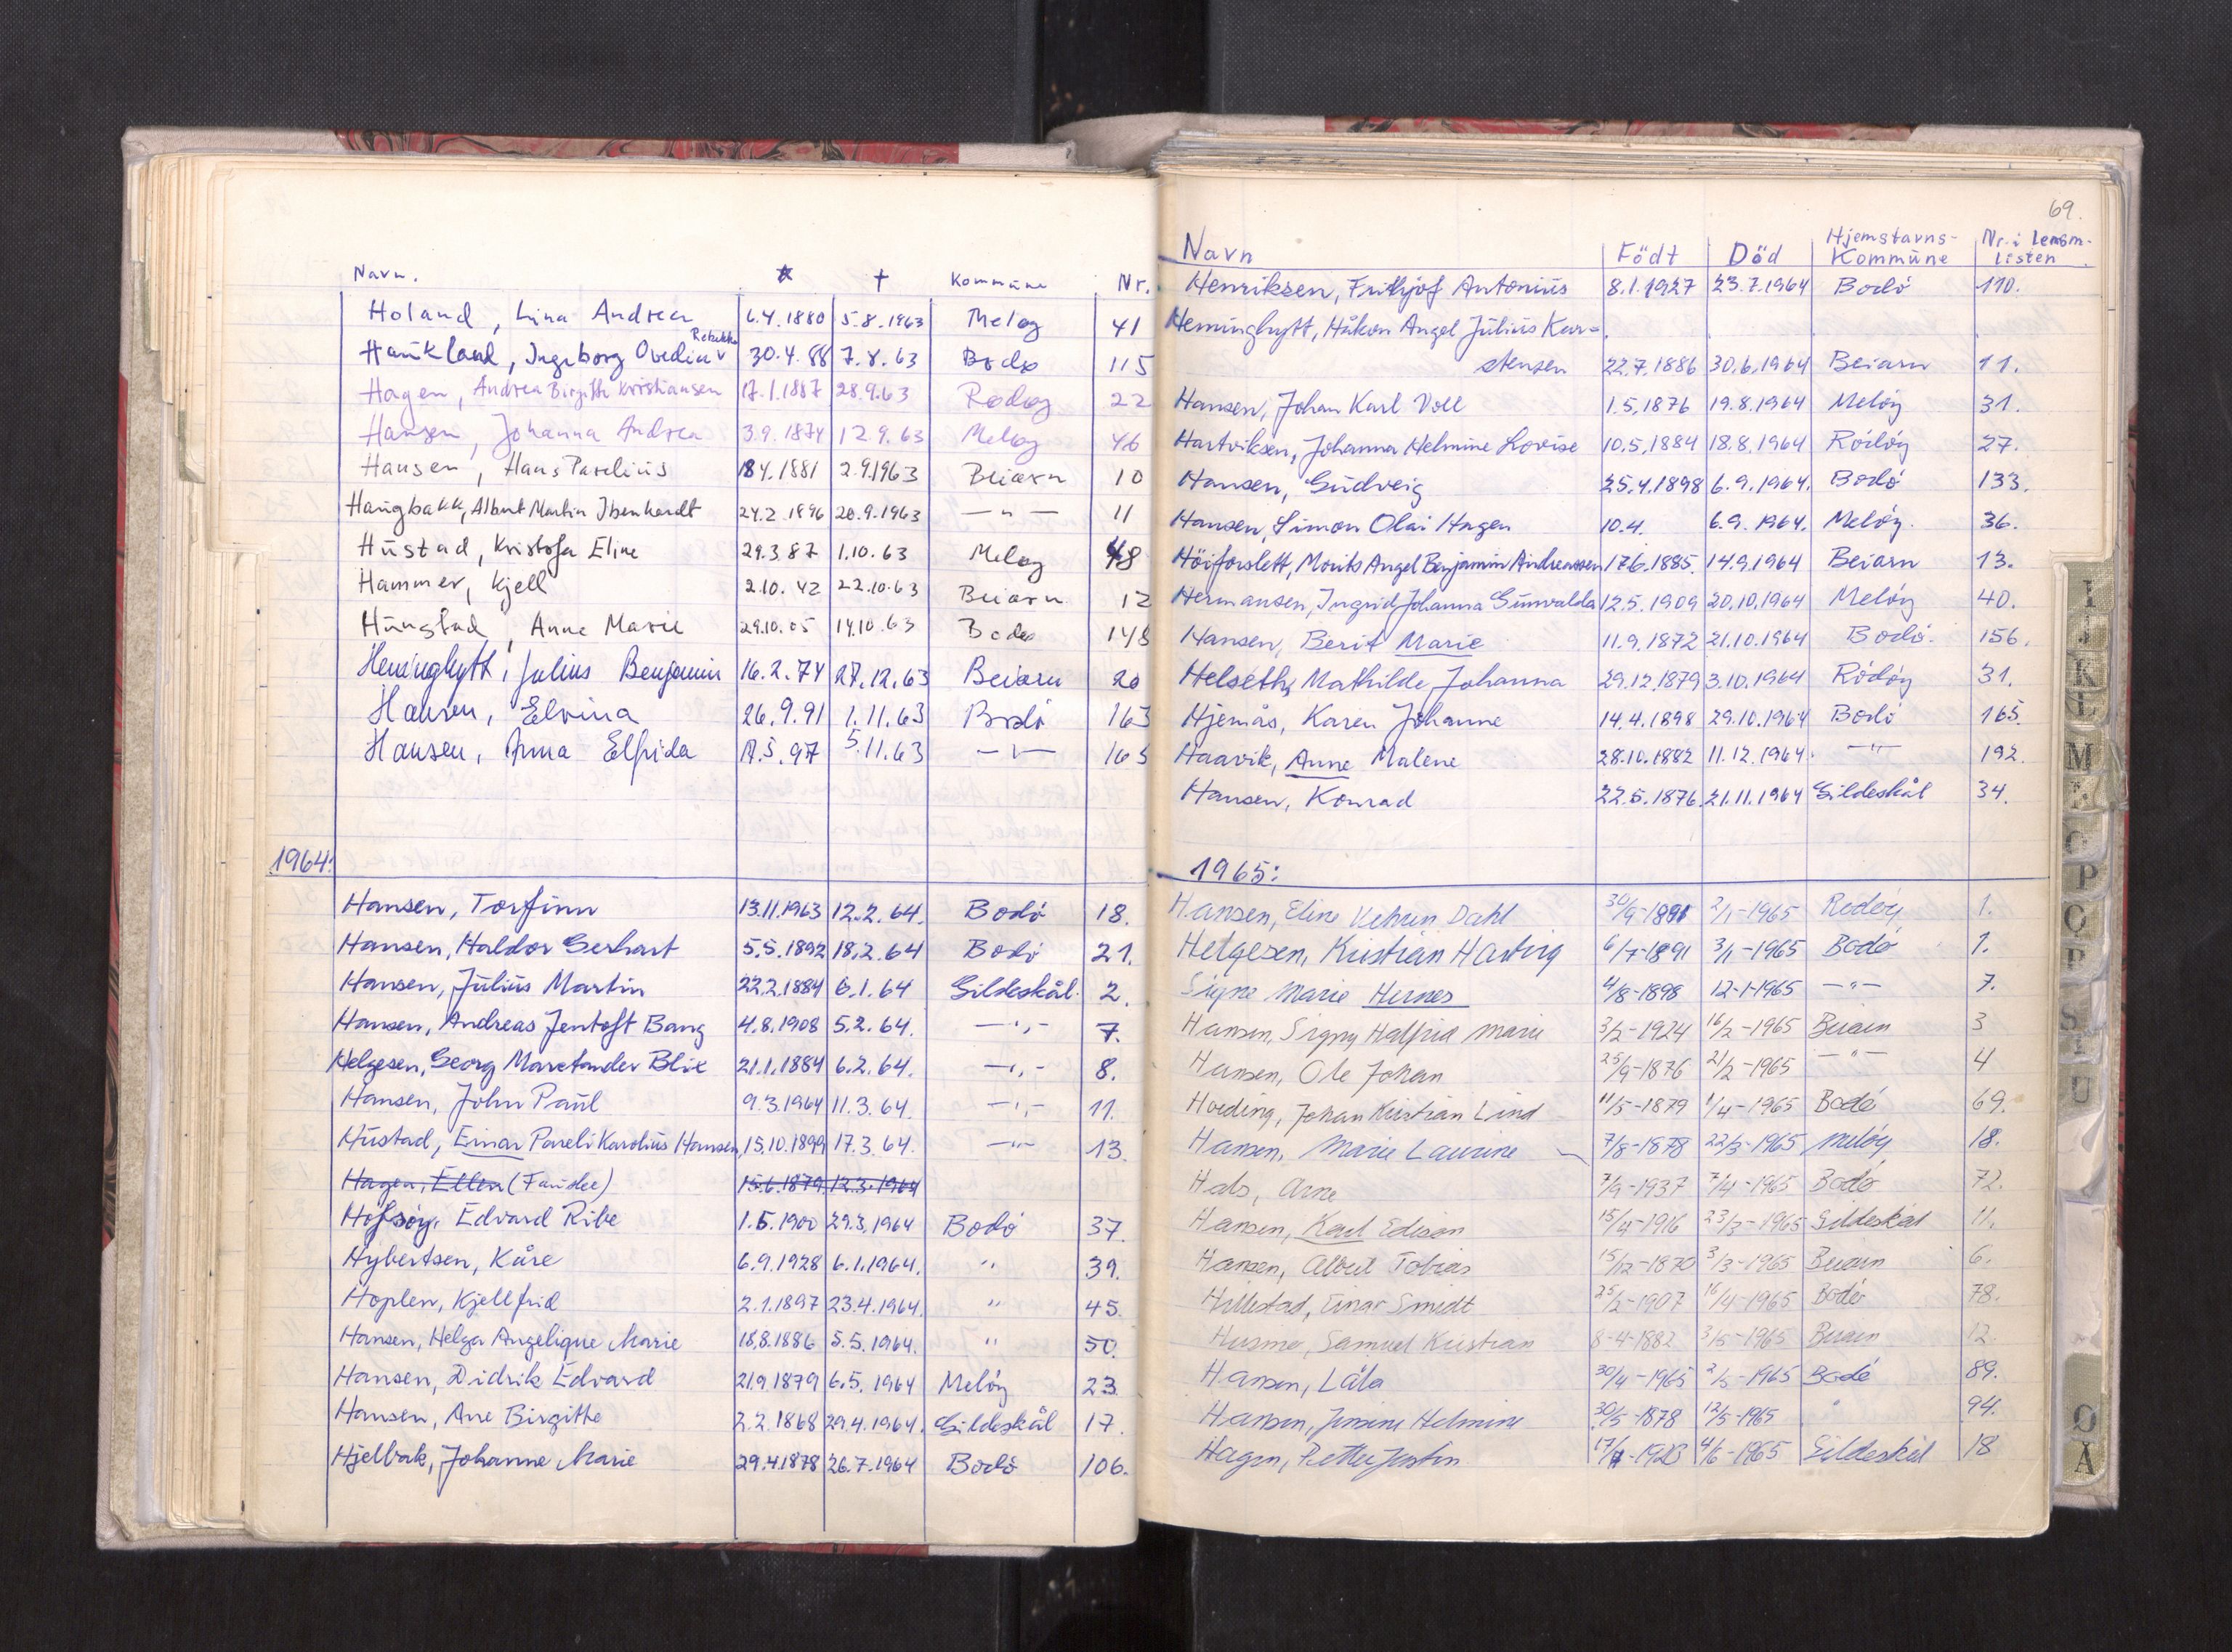 Navn. ☆ † Kommüne Nr.
Holand, Lina Andrea 6.4.1880 5.8.1963 Meløy 41
Rebekka
Haukland, Ingeborg Ovedia v 30.4.88 7.8.63 Bodø 115
Hagen, Andrea Birgitte Kristiansen 17.1.1887 28.9.63 Rødøy 22
Hansen, Johanna Andrea 3.9.1874 12.9.63 Meløy 46
Hansen, Hans Parelius 18.4.1881 2.9.1963 Beiarn 10
Haugbakk, Albert Martin Ibenhardt 24.2.1896 20.9.1963 — " — 11
Hüstad, Kristofa Eline 29.3.87 1.10.63 Meløy 48
Hammer, Kjell 2.10.42 22.10.63 Beiarn 12
Hüngstad, Anna Marie 29.10.05 14.10.63 Bodø 148
Heminghytt, Julius Benjamin 16.2.74 27.12.63 Beiarn 20
Hansen, Elvina 26.9.91 1.11.63 Bodö 163
Hansen, Anna Elfrida 17.5.97 5.11.63 — " — 165
1964:
Hansen, Torfinn 13.11.1963 12.2.64. Bodö 18.
Hansen, Haldor Gerhart 5.5.1892 18.2.64 Bodö 21.
Hansen, Jülius Martin 22.2.1884 6.1.64 Gildeskål. 2.
Hansen, Andreas Jentoft Bang 4.8.1908 5.2.64. — " — 7.
Helgesen, Georg Marelander Blix 21.1.1884 6.2.64. — " — 8.
Hansen, John Paül 9.3.1964 11.3.64. — " — 11.
Hüstad, Einar Pareli Karolius Hansen, 15.10.1899 17.3.64. — " — 13.
Hagen, Ellen (Fauske) 15.6.1879 12.3.1964
Höfsöy, Edvard Ribe 1.5.1900 29.3.1964 Bodö 37.
Hybertsen, Kåre 6.9.1928 6.1.1964. " 39.
Hoplen, Kjellfrid 2.1.1897 23.4.1964. " 45.
Hansen, Helga Angelique Marie 18.8.1886 5.5.1964. " 50.
Hansen, Didrik Edvard 21.9.1879 6.5.1964 Melöy 23.
Hansen, Ane Birgitte 2.2.1868 29.4.1964. Gildeskål 17.
Hjelbak, Johanne Marie 29.4.1878 26.7.1964 Bodö 106.
69.
Navn Födt Död Hjemstavns-Kommüne Nr. i lensm.listen
Henriksen, Frithjof Antonius 8.1.1927 23.7.1964 Bodö 110.
Heminghytt, Håkon Angel Jülius Kar=
stensen 22.7.1886 30.6.1964 Beiarn 11.
Hansen, Johan Karl Voll 1.5.1876 19.8.1964 Melöy 31.
Hartviksen, Johanna Helmine Lovise 10.5.1884 18.8.1964 Rödöy 27.
Hansen, Güdveig 25.4.1898 6.9.1964. Bodö 133.
Hansen, Simon Olai Hagen 10.4. 6.9.1964. Melöy. 36.
Höiforslett, Morits Angel Benjamin Andreassen 17.6.1885. 14.9.1964 Beiarn 13.
Hermansen, Ingrid Johanna Günvalda 12.5.1909 20.10.1964 Melöy 40.
Hansen, Berit Marie 11.9.1872 21.10.1964 Bodö. 156.
Helseth, Mathilde Johanna 29.12.1879 3.10.1964 Rödöy 31.
Hjemås, Karen Johanne 14.4.1898 29.10.1964 Bodö 165.
Haavik, Anne Malene 28.10.1882 11.12.1964. — " — 192.
Hansen, Konrad 22.5.1876. 21.11.1964 Gildeskål 34.
1965:
Hansen, Eline Dahl 30/9-1891 2/1-1965 Rødøy 1.
Helgesen, Kristian Hartvig 6/7-1891 3/1-1965 Bodø 1.
Signe Marie Hernes 4/8-1898 12-1-1965 — " — 7.
Hansen, Signy Halfrid Marie 3/2-1924 16/2-1965 Beiarn 3
Hansen, Ole Johan 25/9-1876 21/2-1965 — " — 4
Hoeding, Johan Kristian Lind 11/5-1879 1/4-1965 Bodø 69.
Hansen, Marie Laurine 7/8-1878 22/3-1965 Meløy 18.
Hals, Arne 7/9-1937 7/4-1965 Bodø 72.
Hansen, Karl Edison 15/4-1916 23/3-1965 Gildeskål 11.
Hansen, Albert Tobias 15/12-1870 3/3-1965 Beiarn 6.
Hillestad, Einar Smidt 25/2-1907 16/4-1965 Bodø 78.
Samuel Kristian 8-4-1882 3/5-1965 Beiarn 12.
Hansen, Låla 30/4-1965 2/5-1965 Bodø 89.
Hansen, Jensine Helmine 30/5-1878 12/5-1965 " 94.
Hagen, Petter Jentin 17/7-1923 4/6-1965 Gildeskål 18
I
J
K
L
M
N
O
P
Q
R
S
T
U
Ø
Å